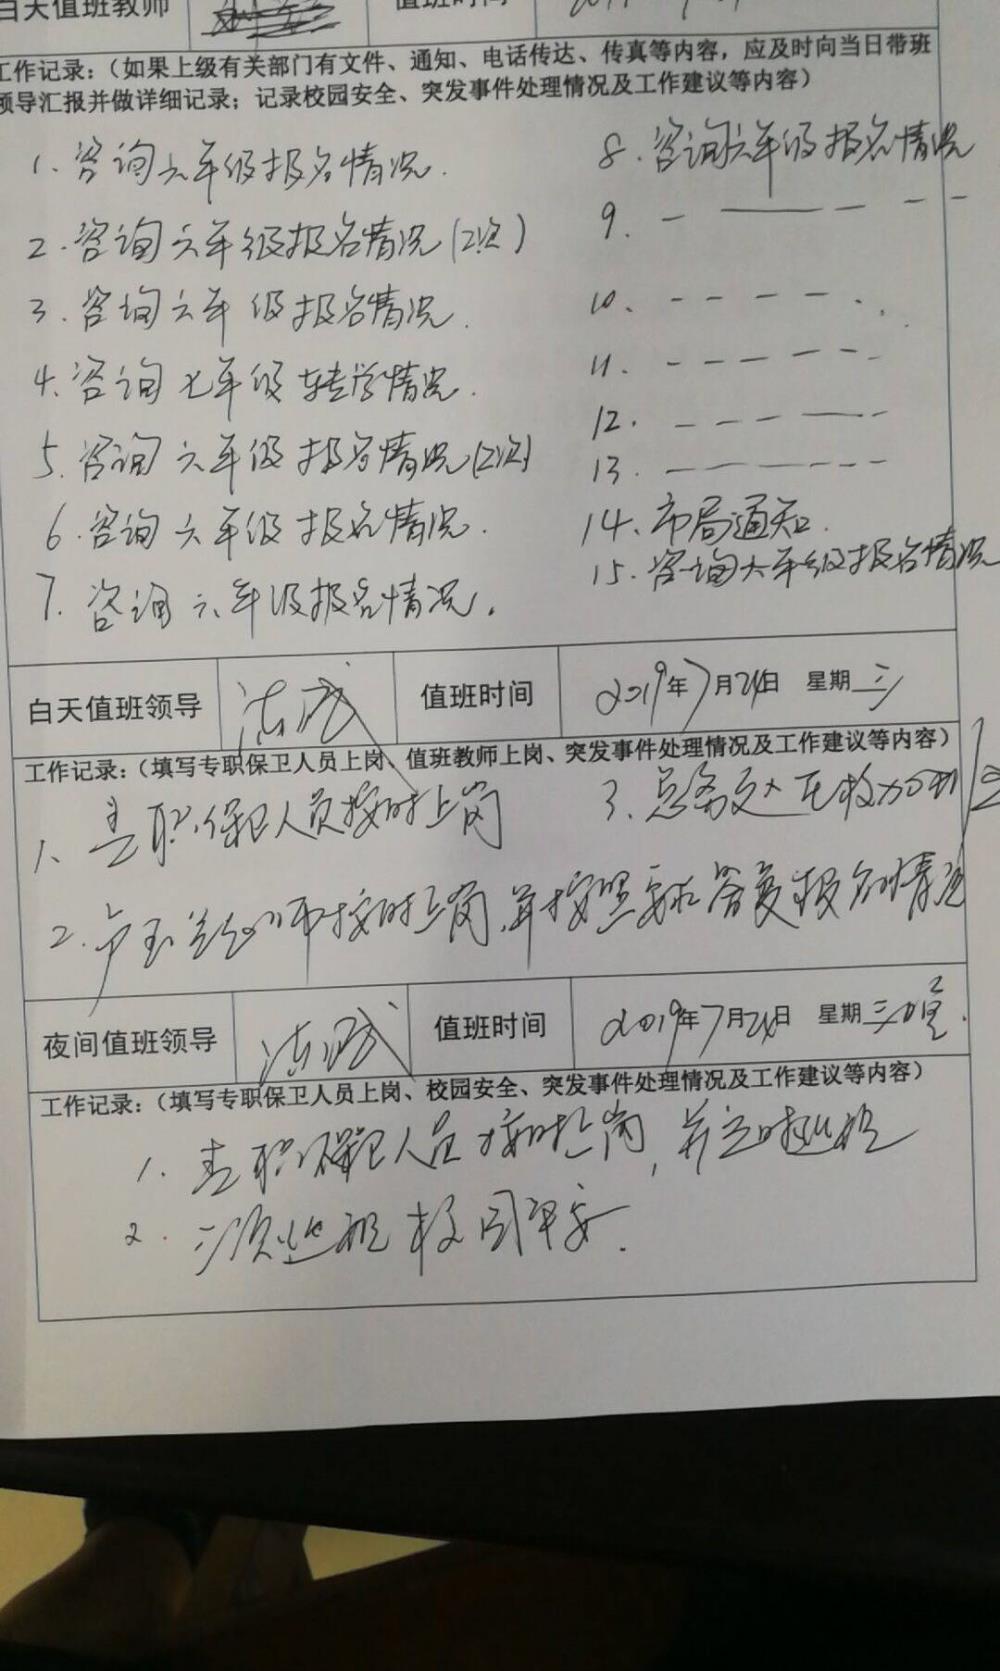 白天值班教师 值班时间
工作记录:(如果上级有关部门有文件、通知、电话传达、传真等内容,应及时向当日带班
领导汇报并做详细记录;记录校园安全、突发事件处理情况及工作建议等内容)
1.咨询六年级报名情况.
2.咨询六年级报名情况(2次)
3.咨询六年级报名情况.
4.咨询七年级转学情况.
5.咨询六年级报名情况(2次)
6.咨询六年级报名情况.
7.咨询六年级报名情况.
8.咨询六年级报名情况
9.
10.
11.
12.
13.
14、市局通知.
15.咨询六年级报名情况
白天值班领导 值班时间 2019年7月24日 星期三
工作记录:(填写专职保卫人员上岗、值班教师上岗、突发事件处理情况及工作建议等内容)
1、专职保卫人员按时上岗
3.总务处在校加班
2.老师按时上岗,并按照要求答复报名情况
夜间值班领导 值班时间 2019年7月24日 星期三
工作记录:(填写专职保卫人员上岗、校园安全、突发事件处理情况及工作建议等内容)
1.专职保卫人员按时上岗,并定时巡视
2.三次巡视校园平安.